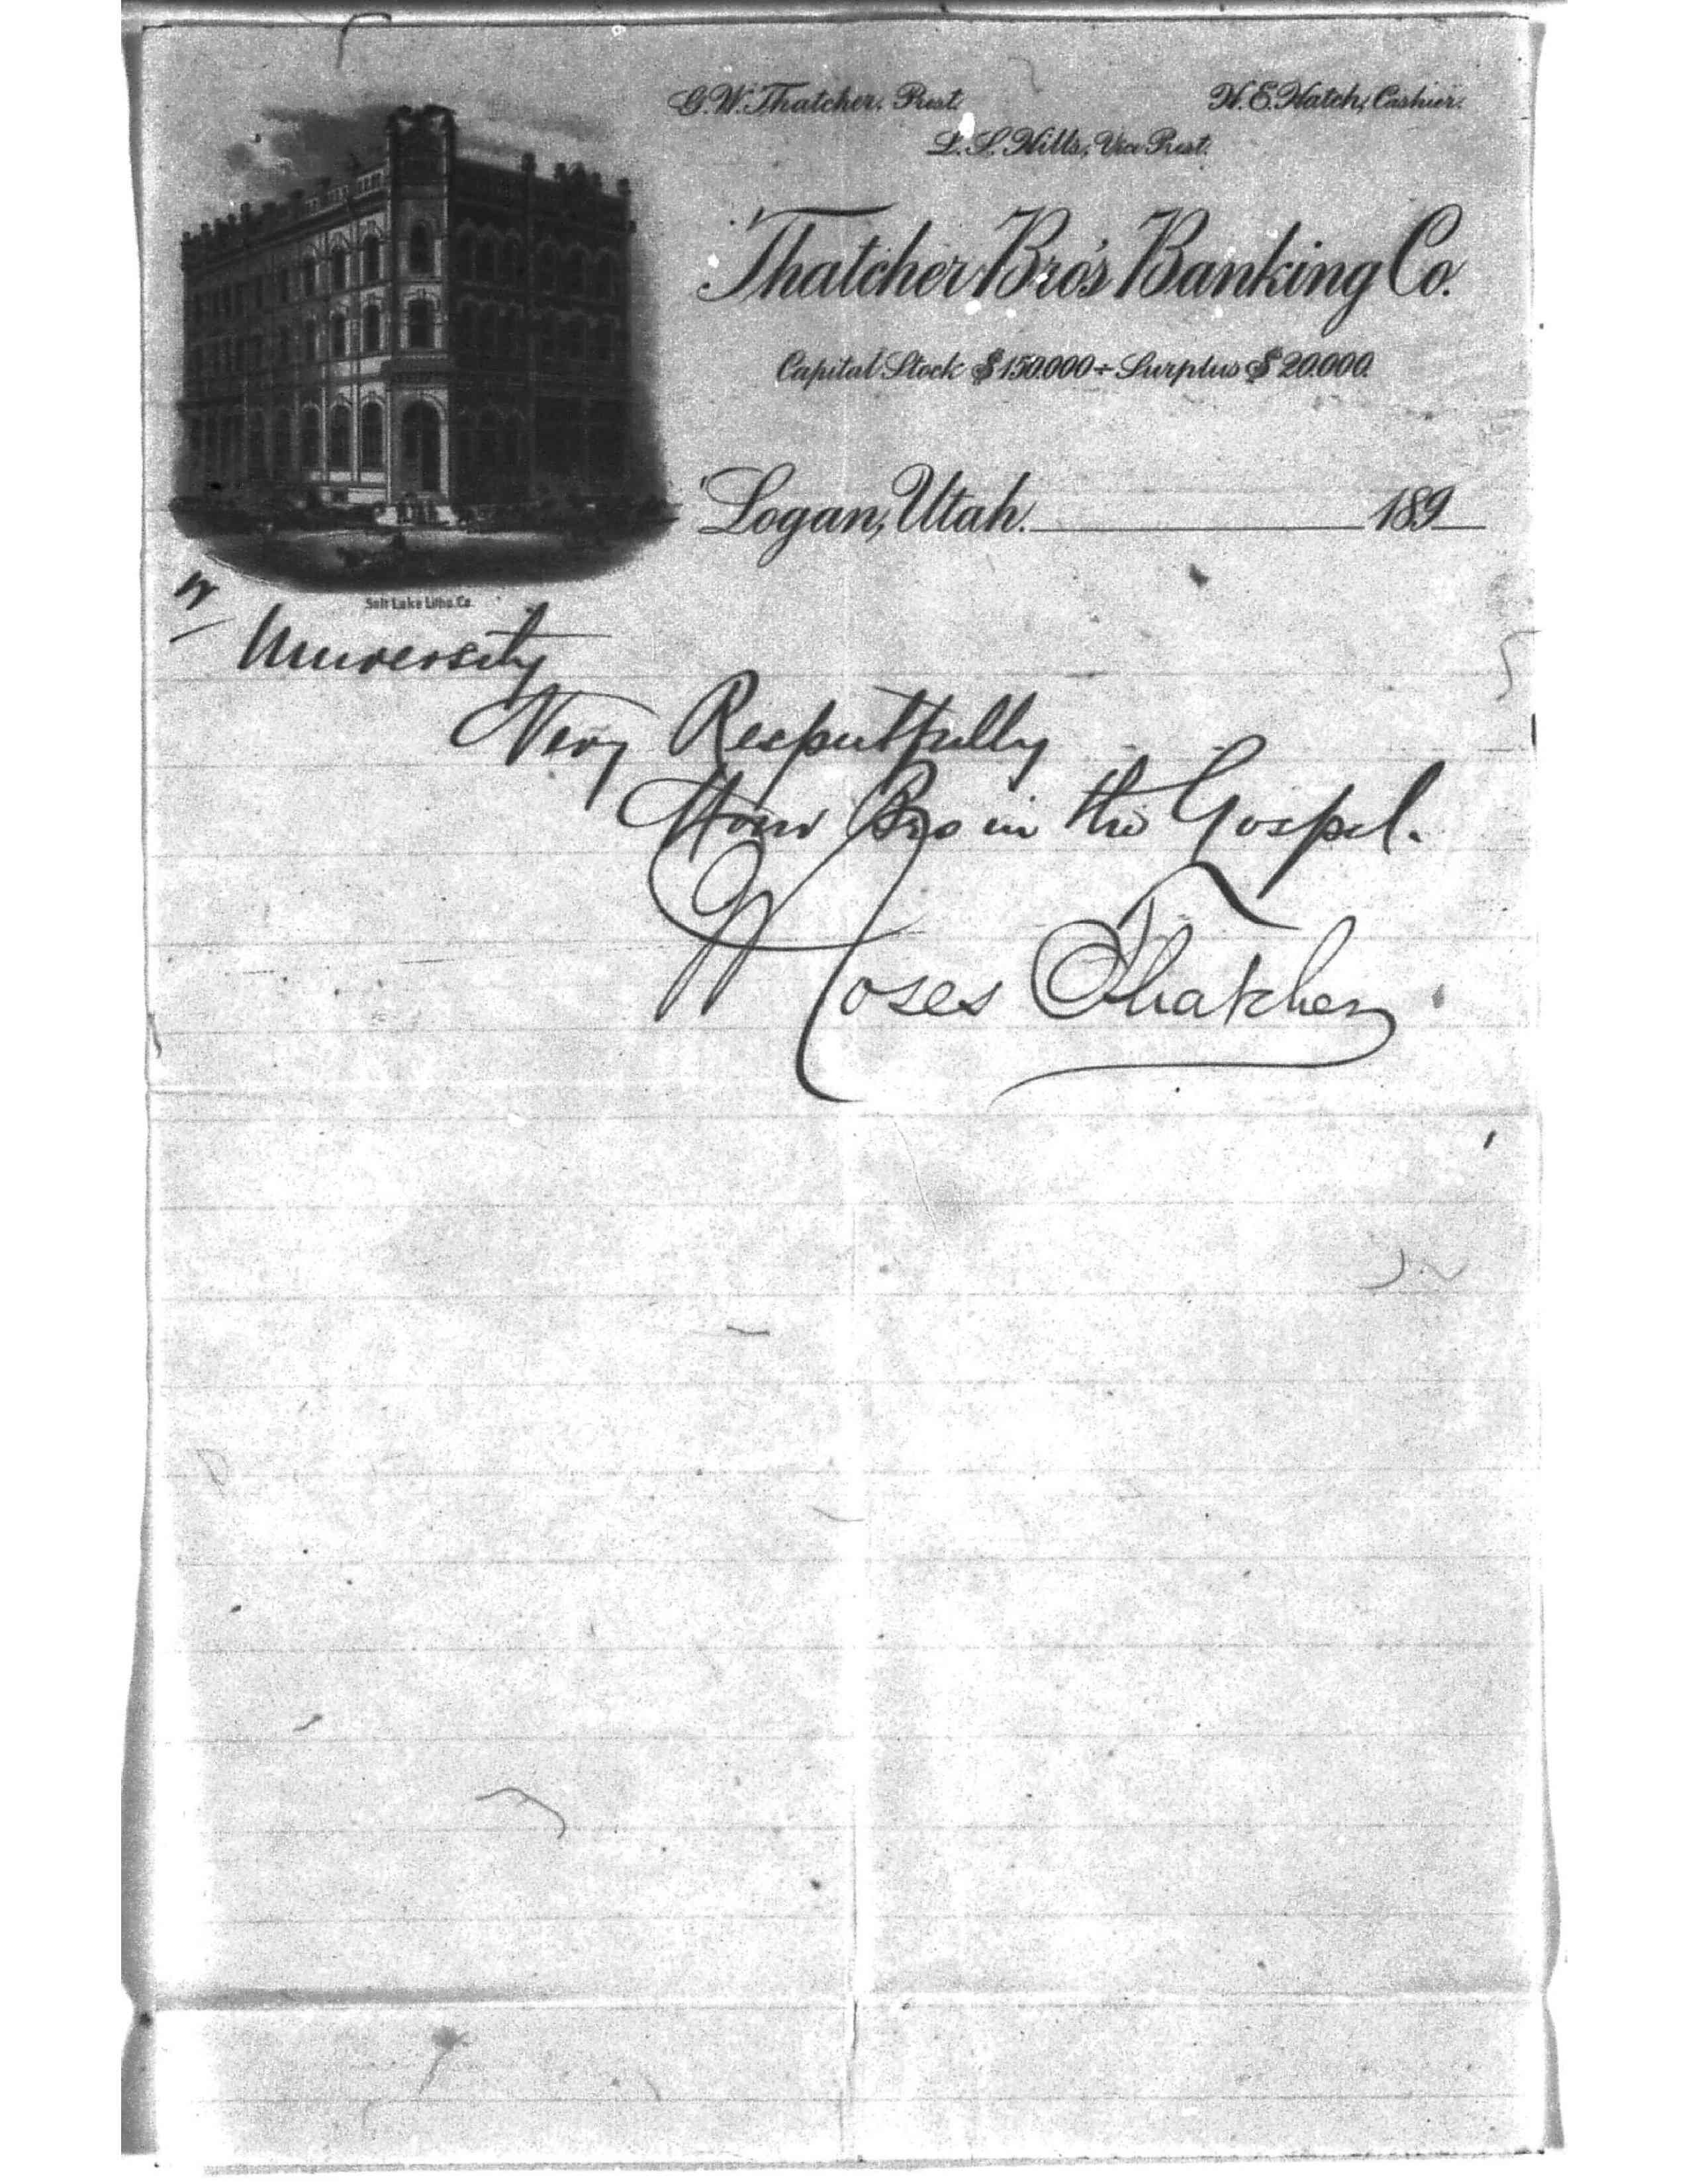 G. W. Thatcher, Prest.
H. E. Hatch, Cashier.
L. S. Hills, Vice Prest.
Thatcher Bro's Banking Co.
Capital Stock $150.000 ÷ Surplus $20.000.
Logan, Utah. 189
Salt Lake Litho. Co.
University
Very Respectfully
Your Bro in the Gospel.
Moses Thatcher